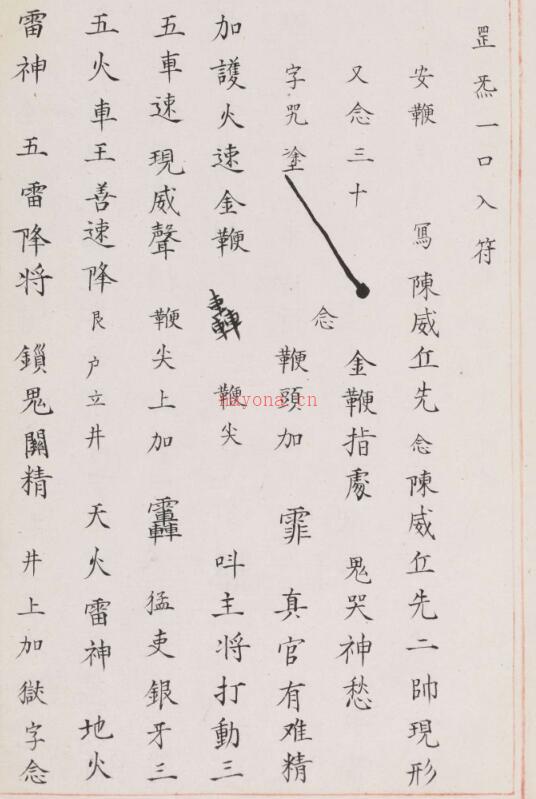 罡炁一口入符
安鞭 寫陳威丘先念陳威丘先二帥現形
又念三十 金鞭指處 鬼哭神愁
字咒塗 念 鞭頭加 霏 真官有难精
加護火速金鞭 鞭尖 呌主将打動三
五車速現威聲 鞭尖上加 猛吏銀牙三
五火車王善速降 艮户立井 天火雷神 地火
雷神 五雷降将 鎖鬼關精 井上加獄字念
nayona.cn